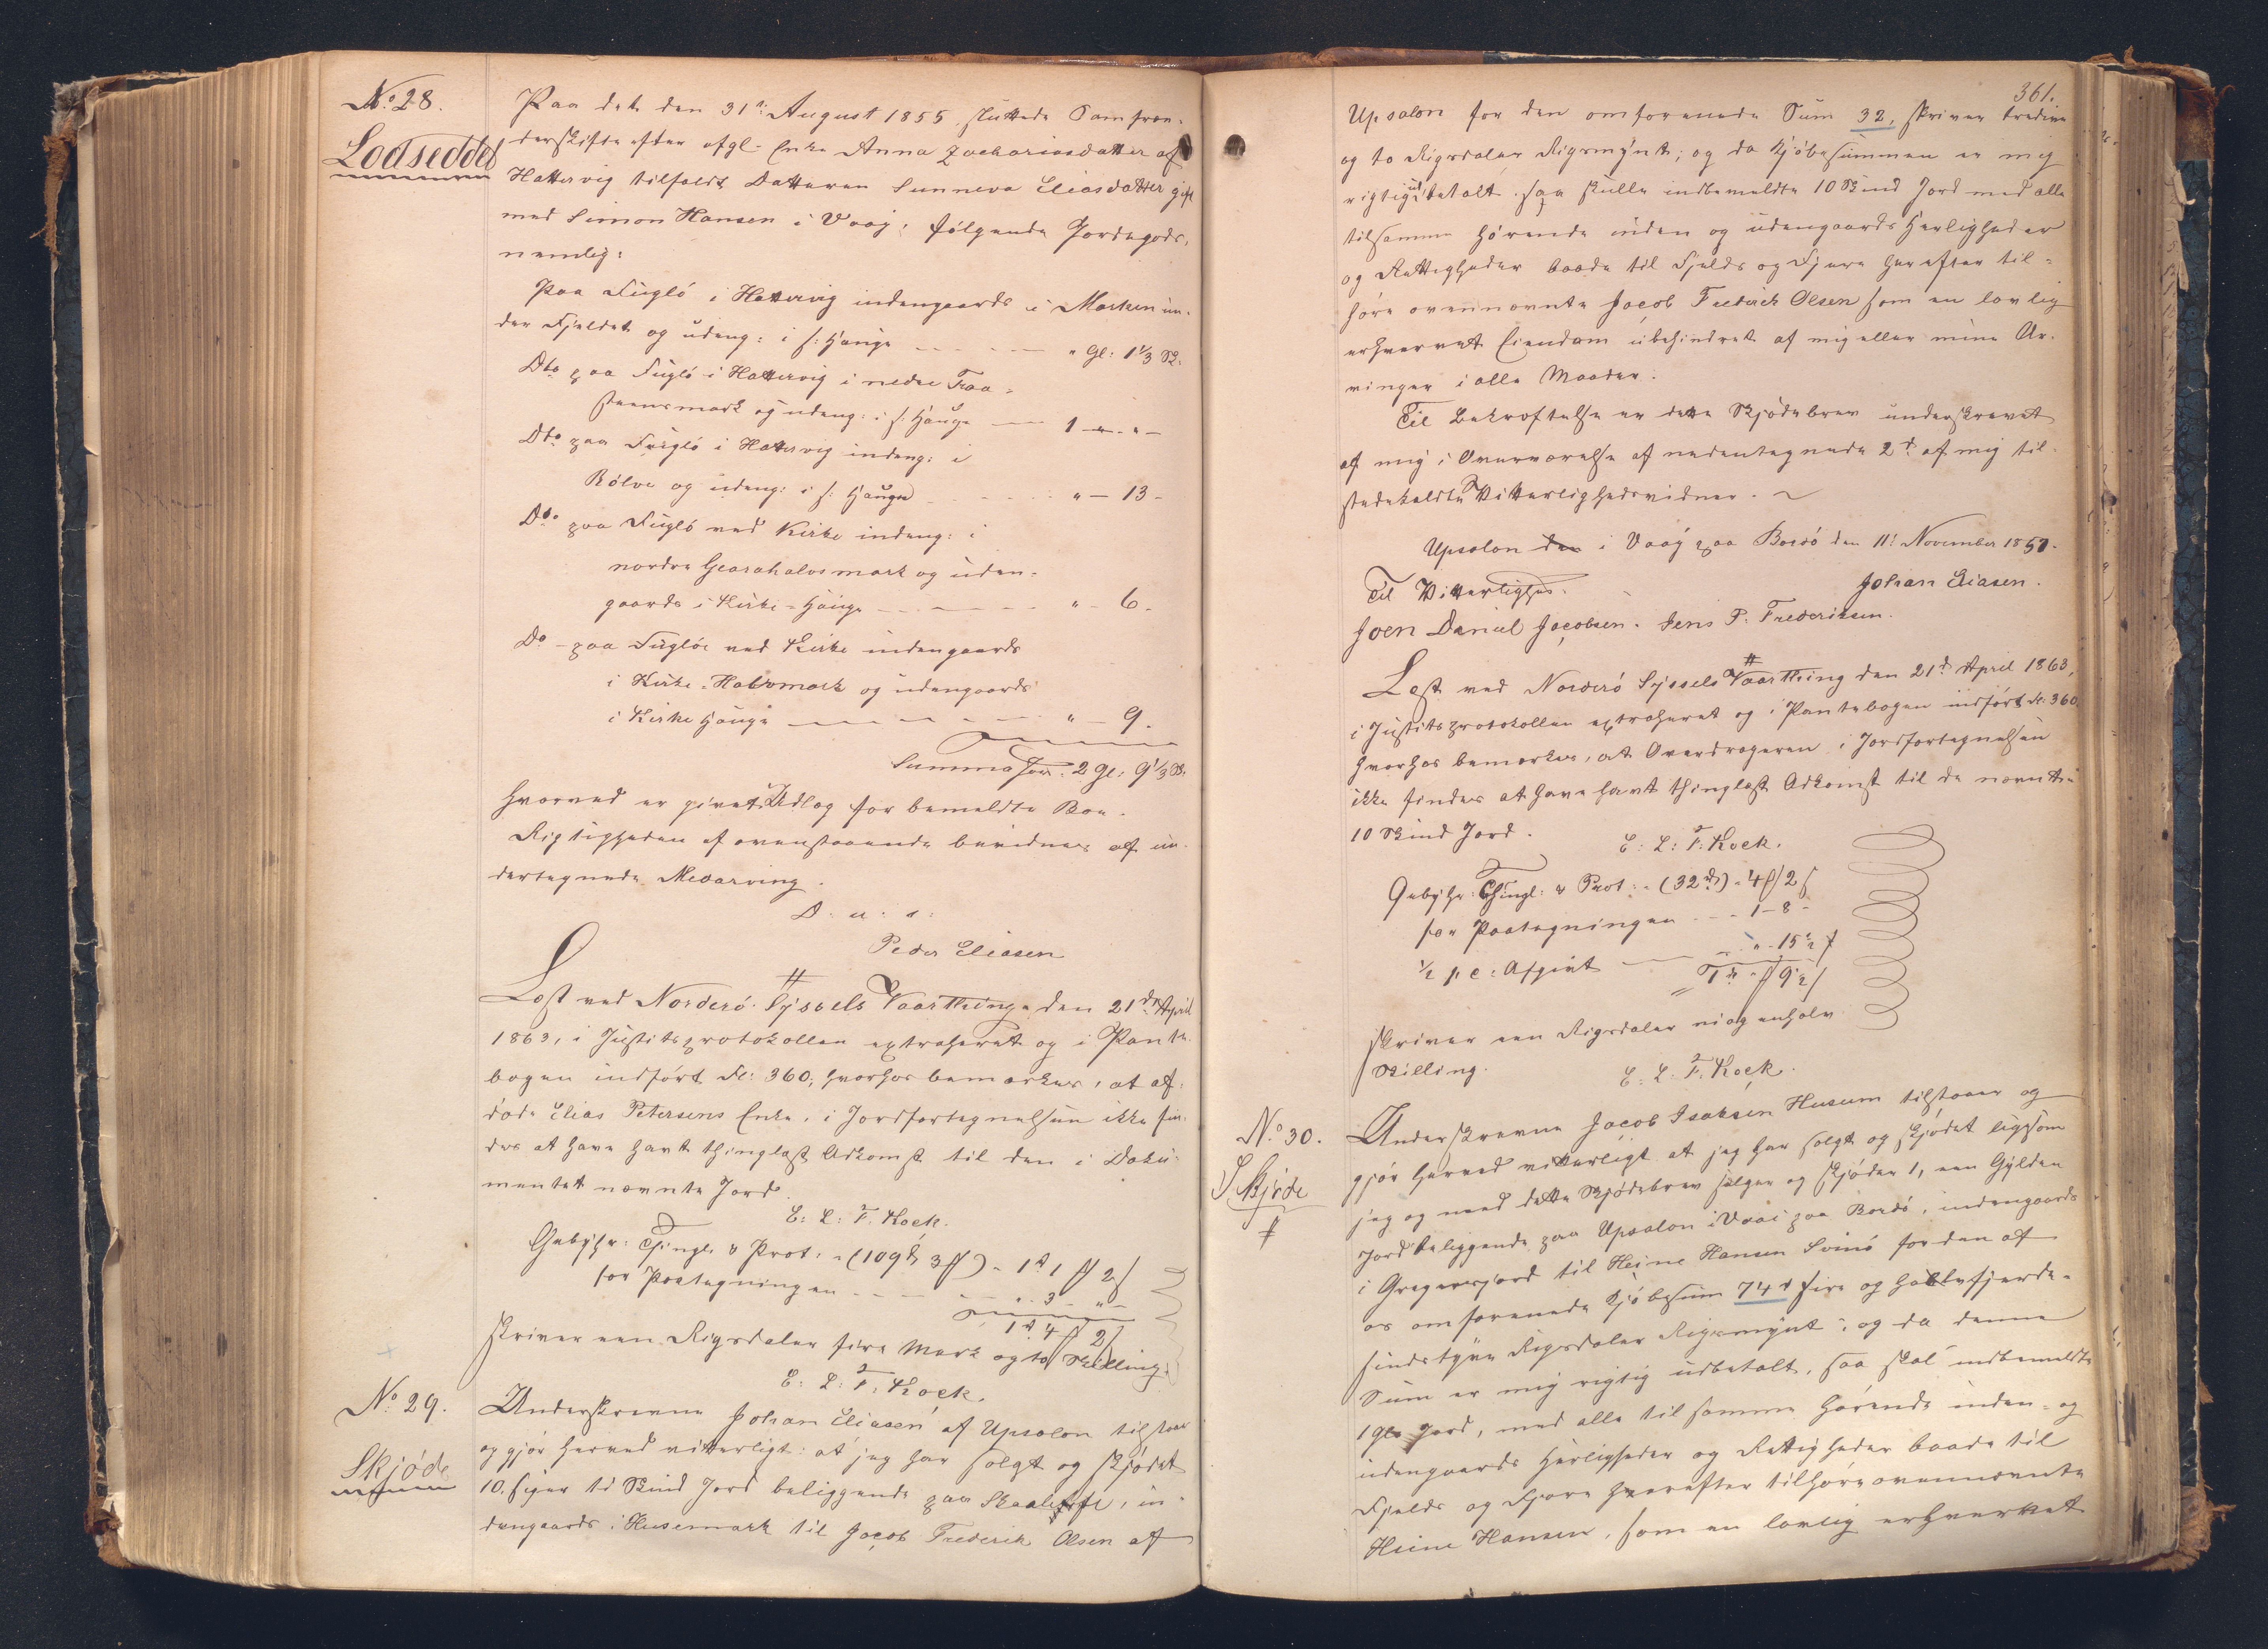 No. 28.
Lodseddel
Paa det den 31te August 1855 sluttede Samfræn-
derskifte efter afgl. Enke Anna Zachariasdatter af
Hattervig tilfaldt Datteren Sunneva Eliasdatter gift
med Simon Hansen i Vaag, følgende Jordegods,
nemlig:
Paa Fuglö i Hattervig indengaards i Marken un-
der Fjeldet og udeng: i s: Hauge — " Gl: 1 1/3 Sk.
Dto paa Fuglö i Hattervig i nedre Traa-
steensmark og udeng: i s: Hauge — 1 - " - " -
Dto paa Fuglö i Hattervig indeng: i
Rólve og udeng: i s: Hauge — " - 13 -
Dto paa Fuglö ved Kirke indeng: i
nordre Gearahalosmark og uden-
gaards i Kirke-Hauge — " - 6 -
Do - paa Fuglöe ved Kirke indengaards
i Kirke-Halvmark og udengaards
i Kirke Hauge — " - 9.
Summa Jord: 2 Gl: 9 1/3 Sk.
Hvorved er givet Udlæg for bemeldte Boe.
Rigtigheden af ovenstaaende bevidnes af un-
dertegnede Medarving.
D. u. s.
Peder Eliasen
Læst ved Norderö Syssels Vaarthing den 21de April
1863, i Justitsprotokollen extraheret og i Pante-
bogen indført Fl: 360, hvorhos bemærkes, at af-
døde Elias Petersens Enke, i Jordfortegnelsen ikke fin-
des at have havt thinglæst Adkomst til den i Doku-
mentet nævnte Jord.
E: L: F. Kock.
Gebyhr: Thingl. & Prot: - (109 rd 3 mk) - 1 rd 1 mk 2 s
for Paategningen — " - 3 - " -
1 rd 4 mk 2 s
skriver een Rigsdaler fire Mark og to Skilling.
E: L: F: Kock.
No. 29.
Skjöde
Underskrevne Johan Eliasen af Upsalon tilstaar
og gjør herved vitterligt: at jeg har solgt og skjødet
10, siger ti Skind Jord beliggende paa Skaaletofte, in-
dengaards i Husemark til Jacob Frederik Olsen af
361.
Upsalon for den omforenede Sum 32, skriver tredive
og to Rigsdaler Rigsmynt; og da Kjøbesummen er mig
rigtig udbetalt saa skulle indbemeldte 10 Skind Jord med alle
tilsamme hørende inden og udengaards Herligheder
og Rettigheder baade til Fjelds og Fjære herefter til-
høre ovennævnte Jacob Frederick Olsen som en lovlig
erhvervet Eiendom ubehindret af mig eller mine Ar-
vinger i alle Maader.
Til Bekræftelse er dette Skjødebrev underskrevet
af mig i Overværelse af nedentegnede 2de af mig til-
stedekaldte Vitterlighedsvidner.
Upsalon den i Vaag paa Bordö den 11: November 1851.
Johan Eliasen.
Til Vitterlighed.
Joen Daniel Jacobsen. Jens P. Frederiksen.
Læst ved Norderö Syssels Vaarthing den 21de April 1863,
i Justitsprotokollen extraheret og i Pantebogen indført Fl. 360
hvorhos bemærkes, at Overdrageren i Jordfortegnelsen
ikke findes at have havt thinglæst Adkomst til de nævnte
10 Skind Jord.
E: L: F: Kock.
Gebyhr: Thingl: & Prot: - (32 rd) - 4 mk 2 s
for Paategningen - - - 1 - 8 -
1/2 p. c: Afgivt — " - 15 1/2 s
1 rd " mk 9 1/2 s
skriver een Rigsdaler niog enhalv
Skilling.
E: L. F. Kock.
No. 30.
Skjöde
Underskrevne Jacob Isaksen Husum tilstaaer og
gjør herved vitterligt at jeg har solgt og skjødet ligesom
jeg og med dette Skjødebrev sælger og skjøder 1, een Gylden
Jord beliggende paa Upsalon i Vaai paa Bordö, indengaards
i Gregersjord til Heine Hansen Svinö for den af
os omforenede Kjøbesum 74 rd fire og halvfjerde-
sindstyve Rigsdaler Rigsmynt; og da denne
Sum er mig rigtig udbetalt, saa skal indbemeldte
1 Gl. Jord, med alle til samme hørende inden- og
udengaards Herligheder og Rettigheder baade til
Fjelds og Fjære herefter tilhøre ovennævnte
Heine Hansen, som en lovlig erhvervet